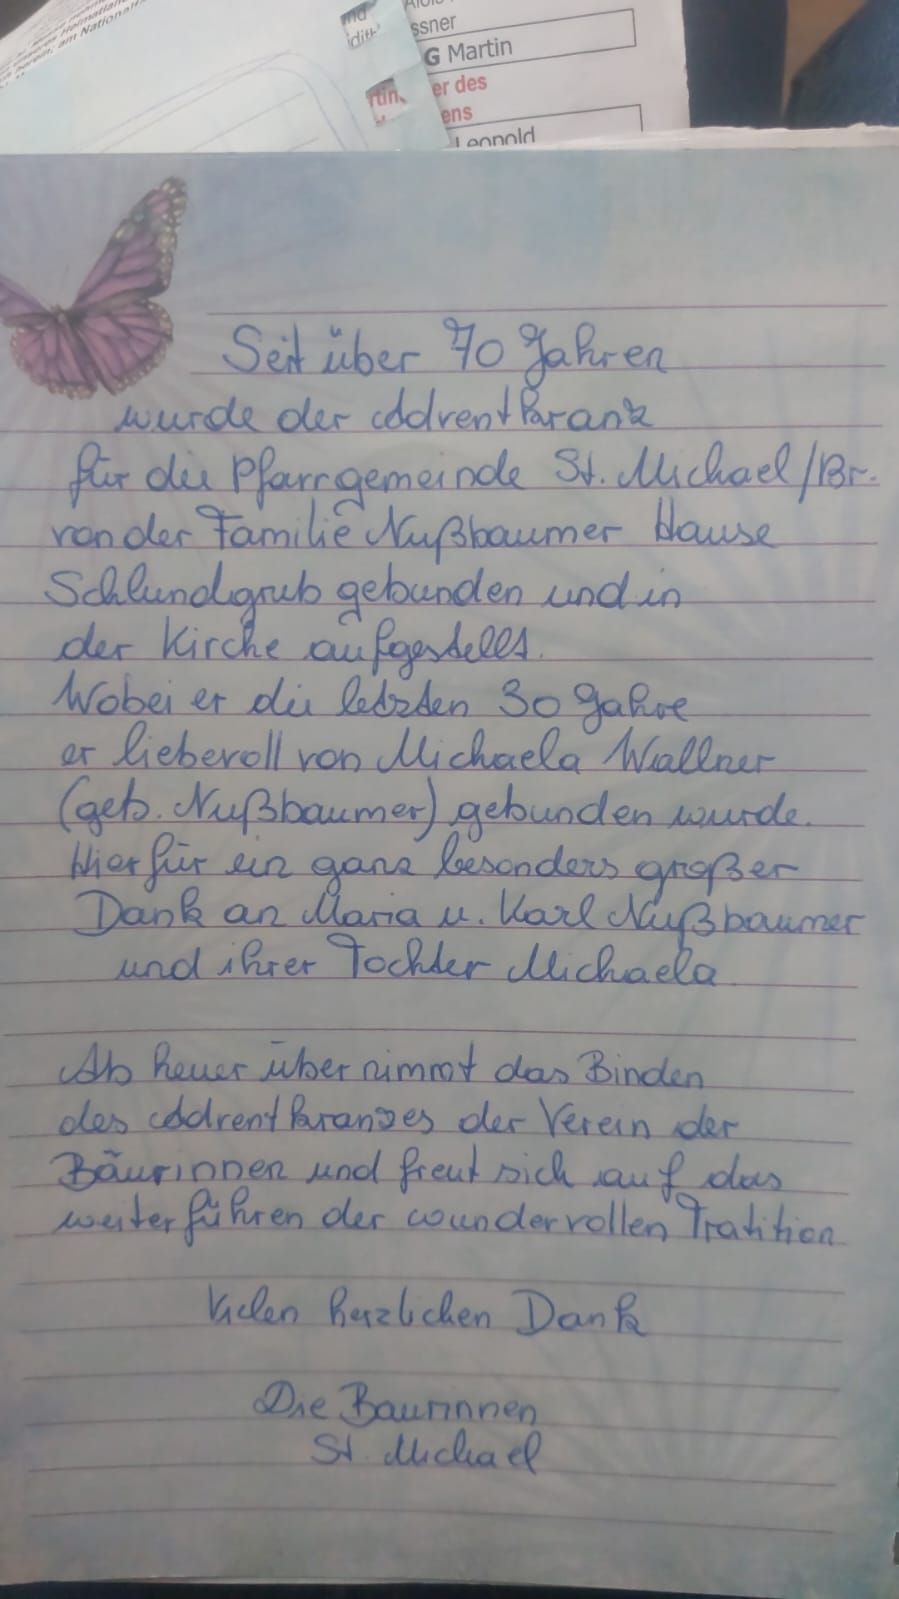 ssner
G Martin
er des
ens
Leopold
Seit über 70 Jahren
wurde der Adventkranz
für die Pfarrgemeinde St. Michael/Br.
von der Familie Nußbaumer Hause
Schlundgrub gebunden und in
der Kirche aufgestellt.
Wobei er die letzten 30 Jahre
er liebevoll von Michaela Wallner
(geb. Nußbaumer) gebunden wurde.
Hierfür ein ganz besonders großer
Dank an Maria u. Karl Nußbaumer
und ihrer Tochter Michaela
Ab heuer übernimmt das Binden
des Adventkranzes der Verein der
Bäurinnen und freut sich auf das
weiterführen der wundervollen Tratition
Vielen herzlichen Dank
Die Baurinnen
St. Michael